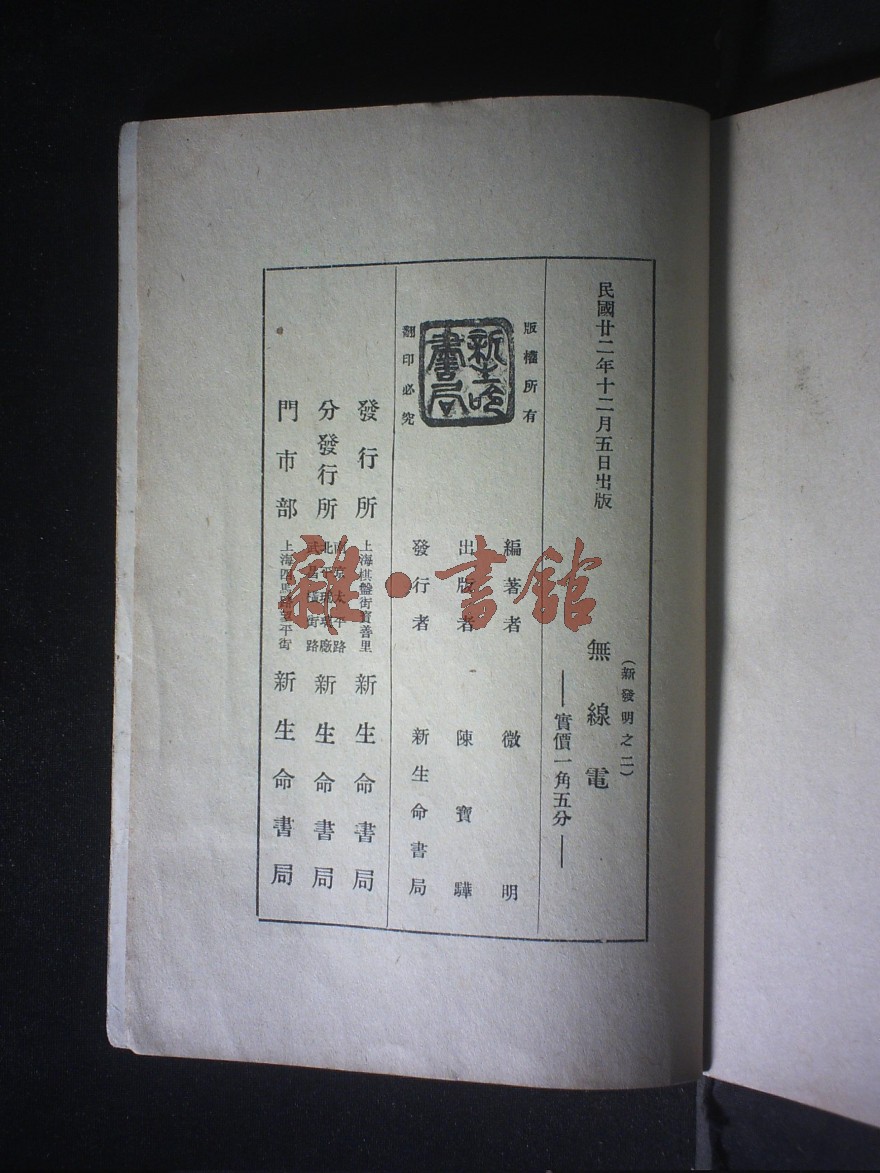 民國廿二年十二月五日出版
(新發明之二)
無線電
——實價一角五分——
版權所有
新生命書局
翻印必究
編著者 微明
出版者 陳寶驊
發行者 新生命書局
發行所 上海棋盤街寶善里 新生命書局
分發行所 南京太平路 北平琉璃廠 武昌橫街路 新生命書局
門市部 上海四馬路望平街 新生命書局
雜·書館